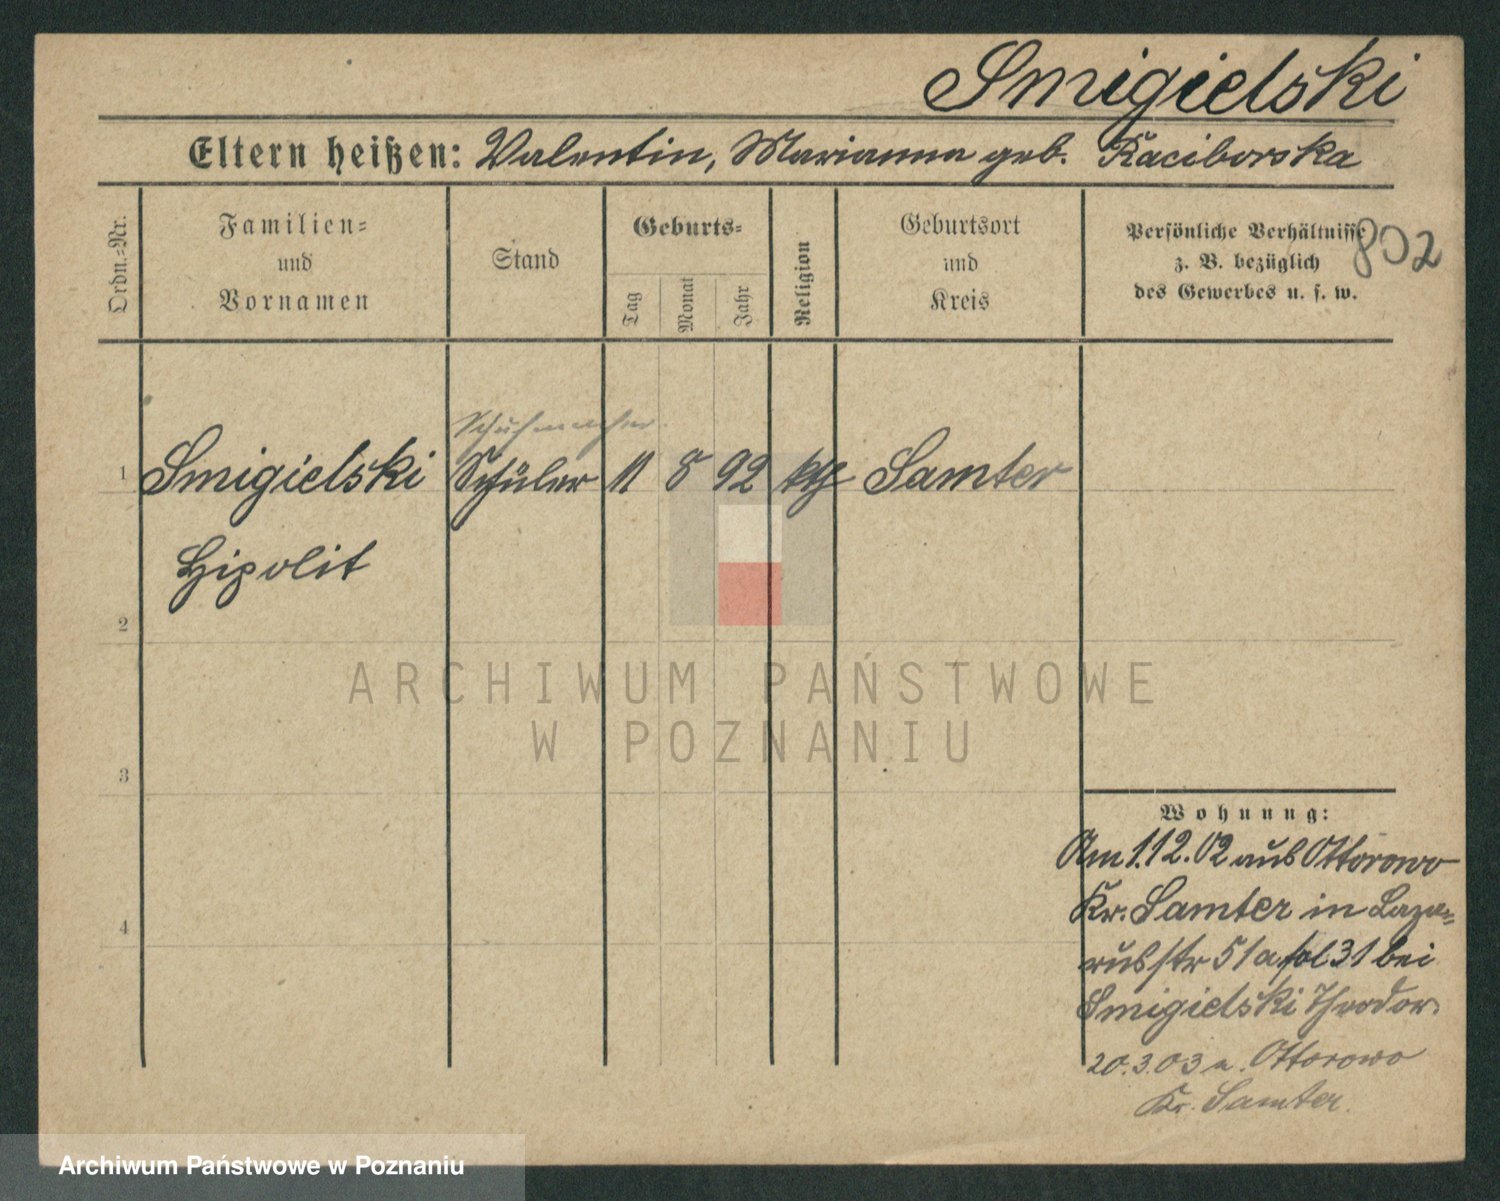 Smigielski
Eltern heißen: Valentin, Marianna geb. Raciborska
Ordn.-Nr.
Familien-
und
Vornamen
Stand
Geburts-
Tag
Monat
Jahr
Religion
Geburtsort
und
Kreis
Persönliche Verhältnisse
z. B. bezüglich
des Gewerbes u. s. w.
802
Schuhmacher
1 Smigielski Schüler 11 8 92 kth Samter
Hipolit
2
3
4
ARCHIWUM PAŃSTWOWE
W POZNANIU
Wohnung:
Am 1.12.02 aus Ottorowo
Kr. Samter in Laza-
russtr 51a fol 31 bei
Smigielski Theodor.
20.3.03 n. Ottorowo
Kr. Samter.
Archiwum Państwowe w Poznaniu